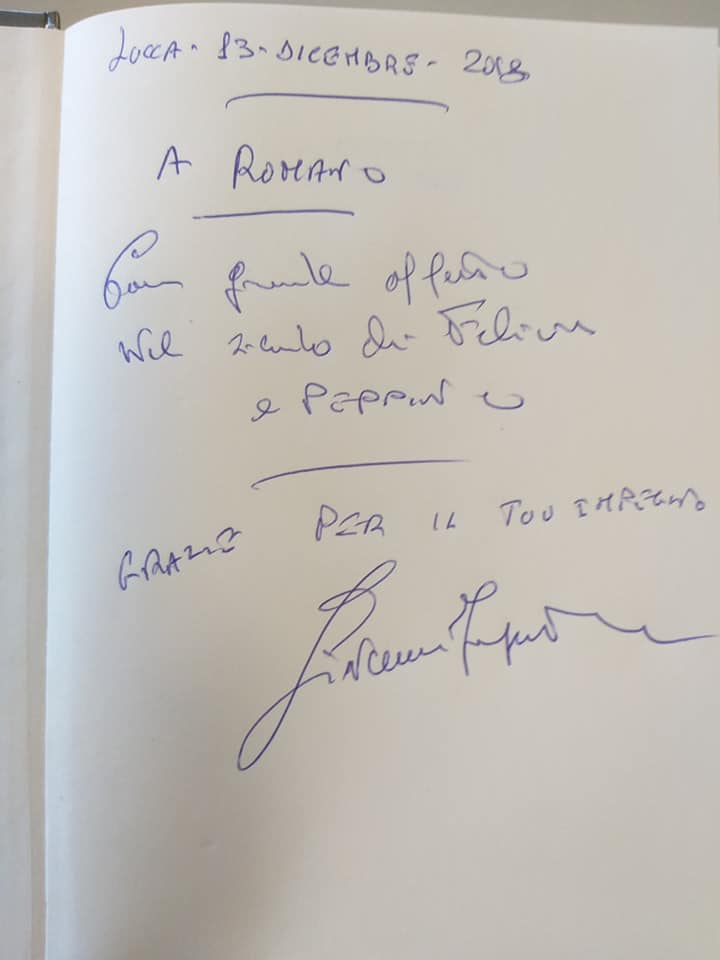 LUCCA - 13 - DICEMBRE - 2018
A ROMANO
Con grande affetto
Nel ricordo di Felicia
e PEPPINO
GRAZIE PER IL TUO IMPEGNO
Giovanni Impastato